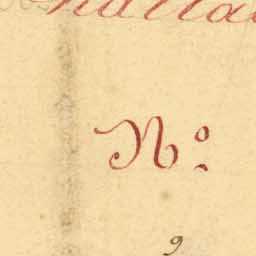 No.
9